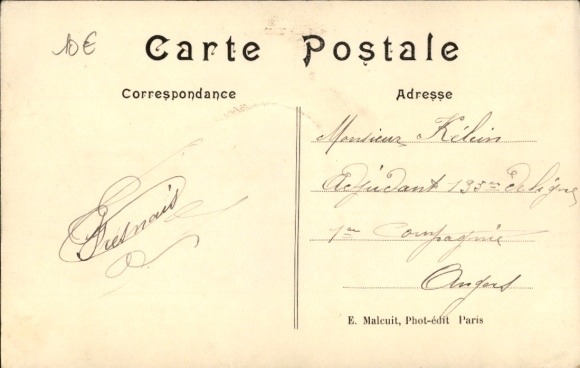 10€
Carte Postale
Correspondance
Adresse
Monsieur Kélin
Adjudant 135me de ligne
1re Compagnie
Angers
Fresnais
E. Malcuit, Phot-édit Paris